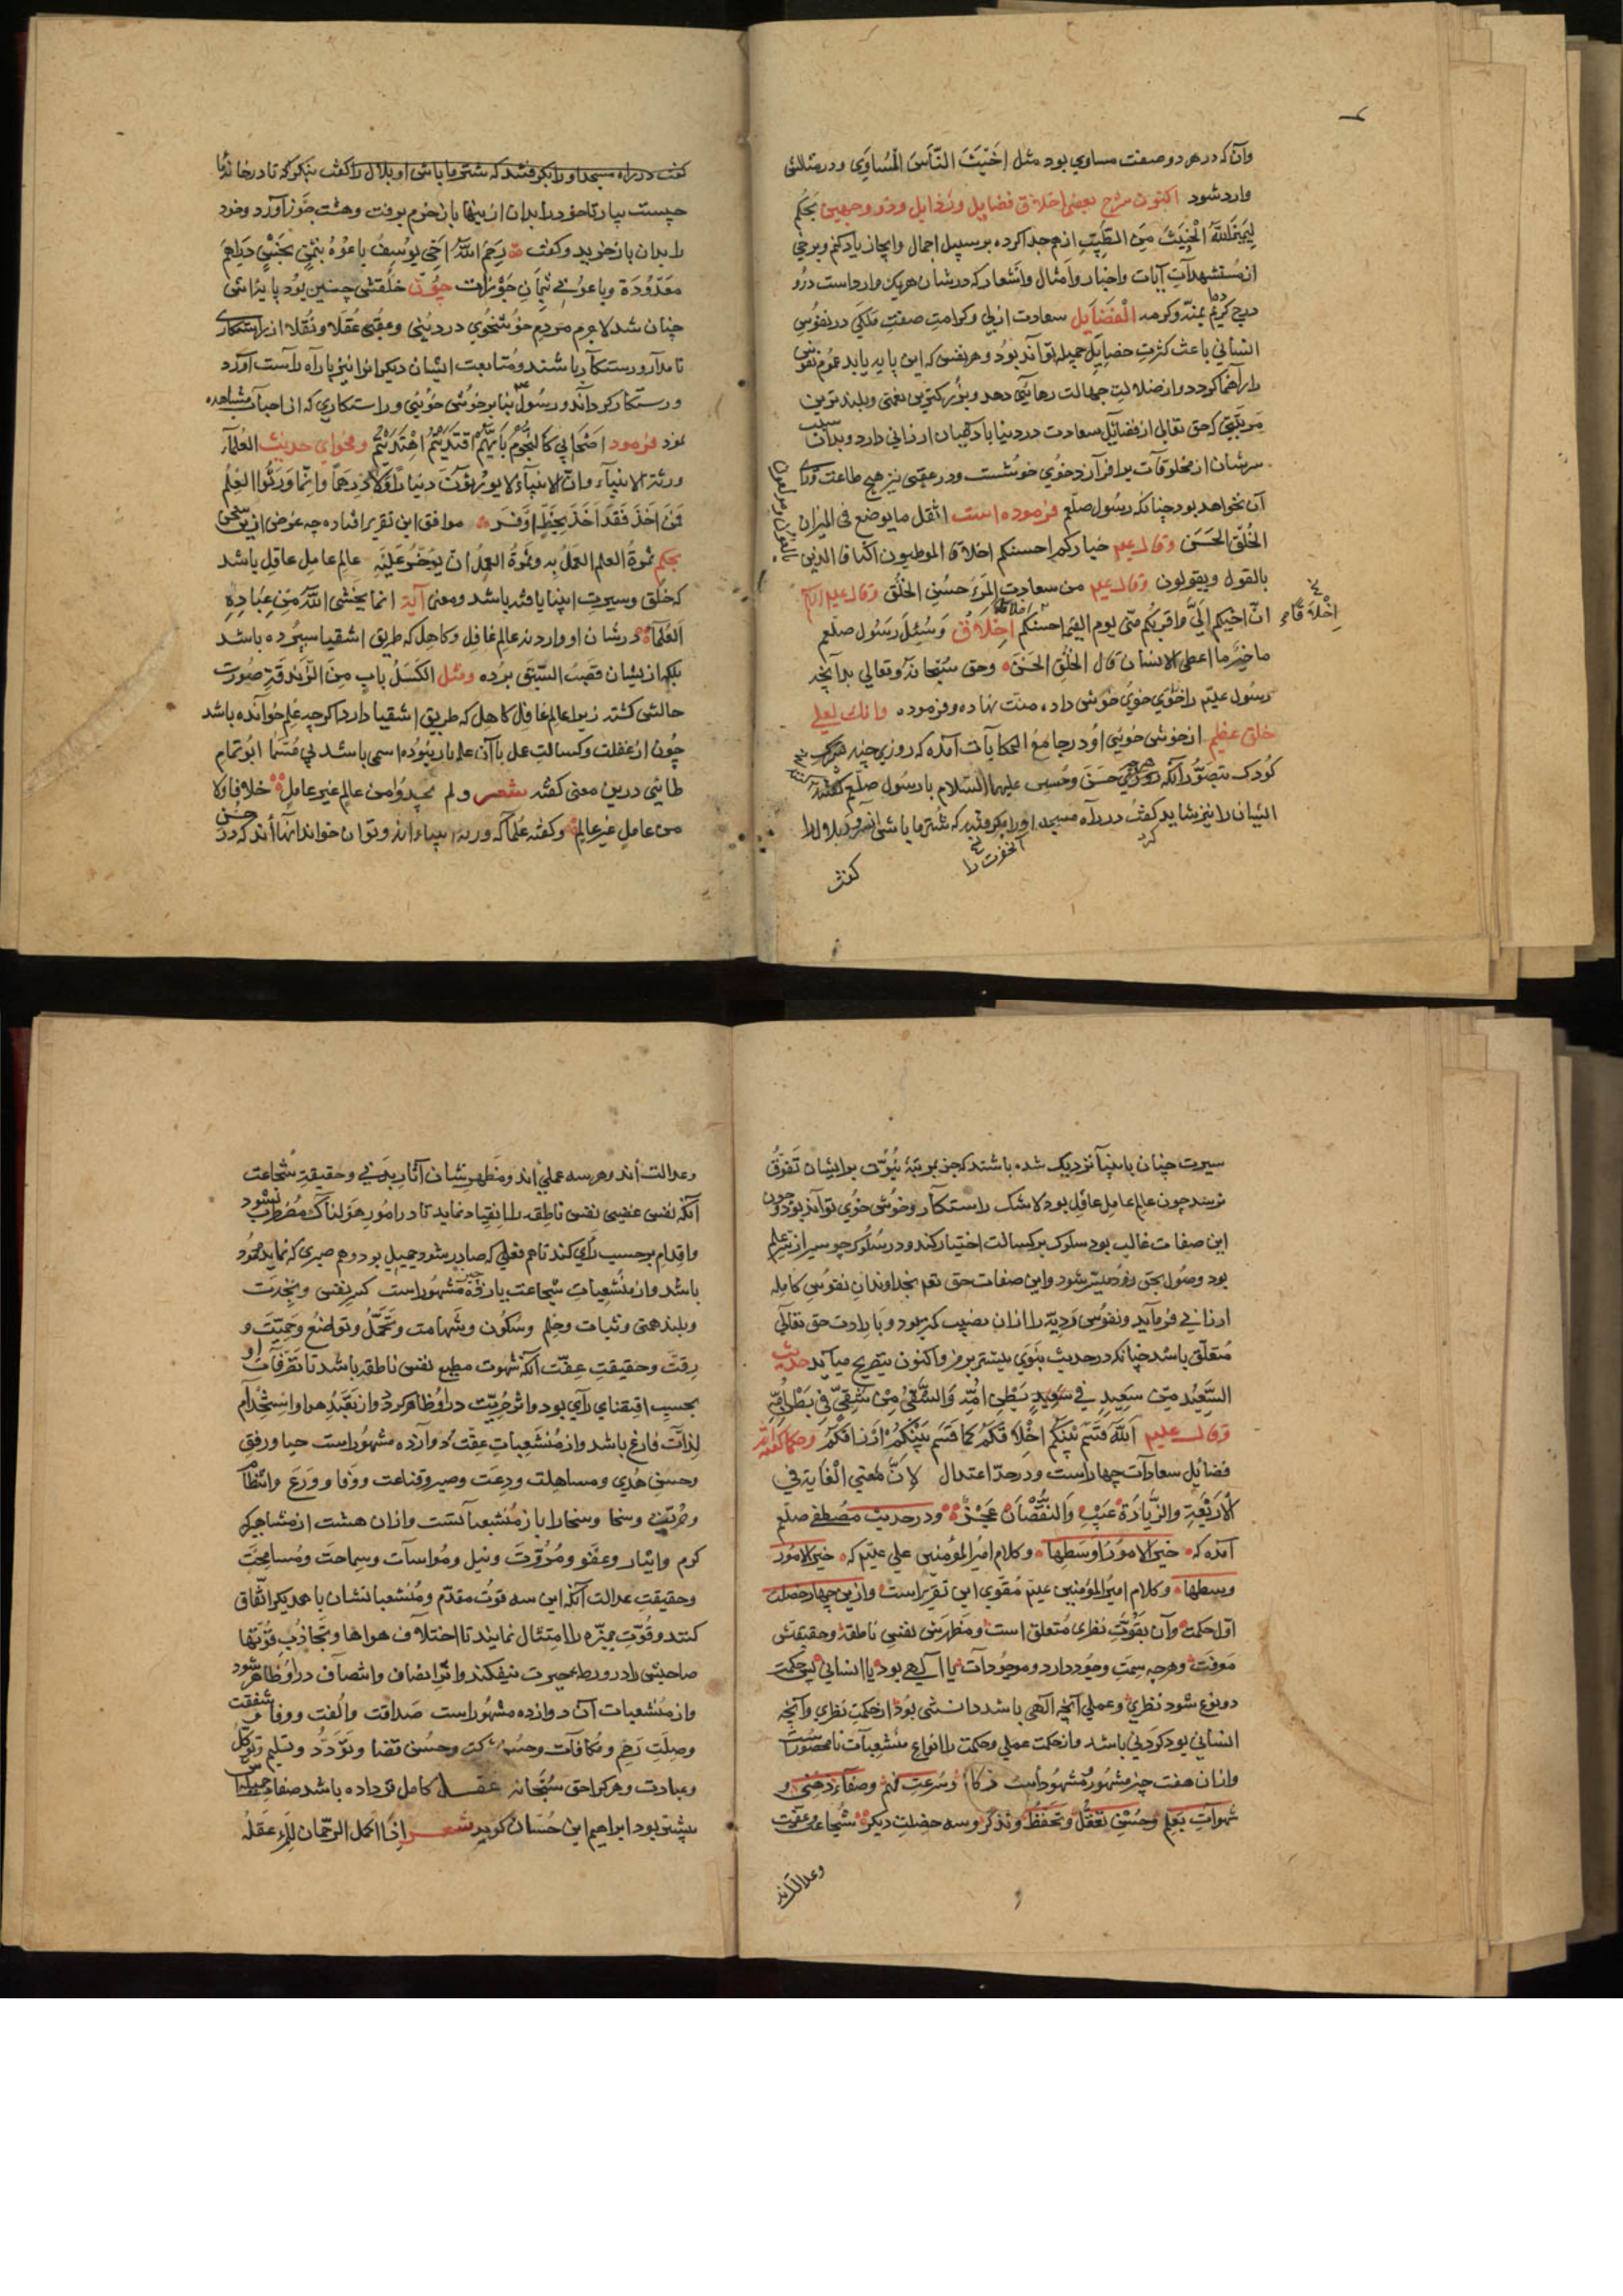 وآن که در هر دو صفت مساوی بود مثل اَخْبَثَ النَّاسِ الْمُسَاوِي ودر مثلثی
وارد شود اکنون شرح بعضی اخلاق فضایل ورذایل وذو وجهین بحکم
لِیَمِیْزَ اللّٰهُ الْخَبِیْثَ مِنَ الطَّیِّبِ از هم جدا کرده بر سبیل اجمال وایجاز یاد کنم وبرخی
از مُستشهدآتِ آیات واخبار وامثال واشعار که در شان هریک وارد است درو
درج کریم بمنّه وکرمه الْفَضَآیِل سعادت ازلی وکرامتِ صفتِ ملکی در نفُوسِ
انسانی باعث کثرتِ خصایِلِ حمیله توآند بُود وهر نفس که این پایه یابد عموم نفوس
را راهنما کردد واز ضلالتِ جهالت رهایی دهد وبزُرکترین نعمتی وبلندترین
مرتبتی که حق تعالی از فضایل سعادت در دنیا بآدمیان ارزانی دارد وبدان سبب
سرشان از مخلوقآت برافرآزد خوُي خوُشست ودر عقبی نیز هیچ طاعت ورای
آن نخواهد بود چنانکه رسُول صلّعم فرموده است اثقل ما یوضع فی المیزان
الخُلُق الحَسَن وقال علیم خیارکم احسنکم اخلاقا الموطیون اکنافا الذین
بالقول ویقولون وقال علیم من سعادتِ المَرءِ حسُنِ الخُلُق وقال علیم
اِنّ احبّکم اِلَيَّ واقربکُم منّی یوم القیمة احسنکُم اخلاقا وَسُئِلَ رسُول صلّعم
اخلاقا
ما خیَّر ما اعطی الانسان قال الخُلُق الحَسَن وحق سُبحانه وتعالی بدآنچه
رسُول علیّم را خوُي خوُش داده منت نهاده وفرموده وانك لعلی
خلق عظیم از خوُش خوُیی اوُ در جامع الحکایآت آمده که روزی چند
کُودك بتصوُّر آنکه حَسَن وحُسین علیهما السّلام با رسُول صلّعم
ایشان را نیز شاید کفتُ در راه مسجد اورا بکرفتند که شُتر ما باشی بلال را
آنحضرت را
کفت
کفت در راه مسجد اورا بکرفتند که شتر ما باشی او بلال را کفت بنکر که تا در خانه ما
چیست بیار تا خود را بدان از اینها باز خرم برفت وهشت جَوْز آورد وخود
را بدان باز خرید وکفت رَحِمَ اللّٰهُ اَخِي یُوسِفُ باعُوْهُ بِثَمَنٍ بَخْسٍ دَرَاهِمَ
مَعْدُوْدَة وباعوُني بِثَمَانِ جَوْزَات چوُن خلُقش چنین بُود با یزآنش
چنان شد لاجرم مردم خوُشخوُي در دینُی وعقُبی عُقَلا ونُقَلا از راستکاری
نامدآر ورستکآر باشند ومتابعت ایشان دیکرانرا نیز باراه راست آورد
ورستکار کرداند ورسُول بنا بر خوُش خوُیی وراستکاری که از احباب مشاهده
نمود فرمود اَصْحَابِي کَالنُّجُوْمِ بِاَیِّهِمْ اقْتَدَیْتُمْ اهْتَدَیْتُمْ وفحوای حدیث العُلمآءُ
ورثة الانبیآء وانّ الانبیآء لا یورثون دینارًا ولا دِرهَمًا وانّما وَرَّثُوا العِلْمَ
فَمَنْ اَخَذَ فَقَدْ اَخَذَ بِحَظٍّ اَوْفَر موافق این تقریر افتاده چه غرض ازین سخن
بحکم ثمرةُ العلم العَمَلُ به وثمرةُ العملُ ان یُوَجّرُ عَلَیْه عالِمِ عامِل عاقِل باشد
که خلُق وسیرت انبیا یافته باشد ومعنی آیة انما یَخْشَی اللّٰهَ مِنْ عِبَادِهِ
العُلَمآءُ در شان او وارد نه عالِمِ غافِل وکاهِل که طریق اشقیا سپرده باشد
بلکه از ایشان قَصَبُ السّبَق برده ومثل الکَسَلُ بابٌ مِنَ الزَّنْدَقَةِ صُورت
حالش کشته زیرا عالِم غافِل کاهل که طریق اشقیا دارد اکرچه عِلم خوآنده باشد
چُون از غفلت وکسالت عمل باآن علم یار نبوده اسمی باشد بی مُسَمَّا ابُو تمام
طائیی درین معنی کفته شعر ولم یحمدوُا من عالم غیر عاملٍ خلافا ولا
من عاملٍ غیر عالمٍ وکفته علما که ورثه انبیاء اند وتوان خواند آنها اند که در حُسن
سیرت چنان باانبیآ نزدیک شده باشند که جز بمرتبهٔ نُبوُّت برایشان تَفَوُّقُ
نرسد چون عالِمِ عامِل عاقل بود لاشک راستکآر وخوُش خوُي توآند بود وچون
این صفات غالب بود سلوک بر کسالت اختیار کند ودر سُلوُک چو سیر از سَرِ علم
بود وصُول بحق زوُد میسّر شود واین صفات حق تعم بخداوندان نفوُسِ کامله
ارزانی فرمآید ونفُوسِ رَدِیّه را از ان نصیب کمتر بود وباِرادت حق تعالی
مُتعلّق باشد چنانکه در حدیث نبَوي بیشتر برمز واکنون بتصریح میآید حدیث
السَّعِیْدُ مِن سَعِیدٍ فِي سَعِیدٍ بَطْنِ اُمِّهِ وَالشَّقِيُّ مِنْ شَقِيٍّ فِي بَطْنِ اُمِّهِ
وقال علیم اَللّٰهَ قَسَّمَ بَیْنَکُم اَخْلَاقَکُمْ کَمَا قَسَّمَ بَیْنَکُمْ اَرْزَاقَکُمْ وحکما کفته اند
فضائل سعادآت چهاراست ودَر حدّ اعتدال لِاَنَّ لمَعني الْغَایَة فِي
الْاَرْبَعَةِ وَالزِّیَادَةُ عَیْبٌ وَالنُّقْصَانُ عَجْزٌ ودر حدیث مُصطفی صلّعم
آمده که خیر الامور اَوْسَطِها وکلام امیر المؤمنین علي علیّم که خیر الامور
وسطها وکلام امیر المؤمنین علیّم مُقوّي این تقریر است وازین چهار خصلت
اوّل حکمت وآن بقوّتِ نظری مُتعلق است ومظهرش نفسِ ناطقه وحقیقتش
معرفت وهرچه سِمَتِ وجُود دارد وموجُودآت یا آلهی بود یا انسانی پس حکمت
دو نوع شود نظري وعملي آنچه آلهی باشد دانستنی بود از حکمت نظري وآنچه
انسانی بود کردَنی باشد وازحکمت عملي وحکمت را انواعِ مُنشعبآت نامحصوُر است
وازان هفت چیز مشهُور مشهُور است ذکا وسُرعتِ فهم وصفآءِ ذهن و
سُهولَتِ تعلّم وحُسْنِ تعَقُّل وتَحَفُّظ وتذکّر وسه خصلتِ دیکر شُجاعت وعِفّت
وعدالت اند
وعدالت اند وهر سه عملي اند ومَظهرشان آثار بدني وحقیقتِ شجاعت
آنکه نفس غضبی نفس ناطقه را انقیاد نماید تا در امُور هَولناک مُضطرب نشود
واقدام برحسب رَأي کند تا هم فعلي که صادر شود جمیل بود وهم صبری که نماید محموُد
باشد واز مُنشعبات شجاعت یازده چیز مشهُوراست کبر نفس ونجدَت
وبلند همتی وثبات وحِلم وسُکُون وشهامت وتَحَمُّلُ وتواضُع وحمیّت و
رقّت وحقیقتِ عِفّت آنکه شهوت مطیع نفس ناطقه باشد تا تصَرّفآت او
بحسبِ اقتضاي رَأي بود واثر حُرّیت در او ظاهر کردد واز تعَبُّدِ هوا واستخدام
لذّات فارغ باشد واز مُنشعباتِ عِفّت دوآزده مشهُوراست حیا ورفق
وحسن هَدي ومسالمت ودِعَت وصبر وقناعت ووقا ووَرَع وانتظام
وحُرّیّت وسخا وسخا را باز مُنشعبآتست وازان هشت از مشاهیر
کرم وایثار وعفْو ومُرُوّت ونیل ومُواسآت وسماحت ومُسامحَت
وحقیقتِ عدالت آنکه این سه قوت مقدّم ومُنشعباتشان باهمدیکر اتّفاق
کنند وقُوّتِ ممیّزه را امتثال نمایند تا اختلاف هواها وتجاذُبِ قوّتها
صاحبش را در ورطهٔ حیرت نیفکند واثر انصاف وانتصآف در او ظاهر شود
واز مُنشعبات آن دوازده مشهُوراست صداقت واُلفت ووفا وشفقت
وصِلَتِ رَحِم ومُکافآت وحُسن شرکت وحُسنِ قضا وتَوَدُّد وتسلیم وتوکّل
وعبادت وهرکرا حق سُبحانه عقل کامل تر داده باشد صفات حمیله اش
بیشتر بود ابراهیم ابن حُسّان کوید شعر اِذَا اَکْمَل الرّحمٰن لِلْمَرءِ عَقْلَهُ